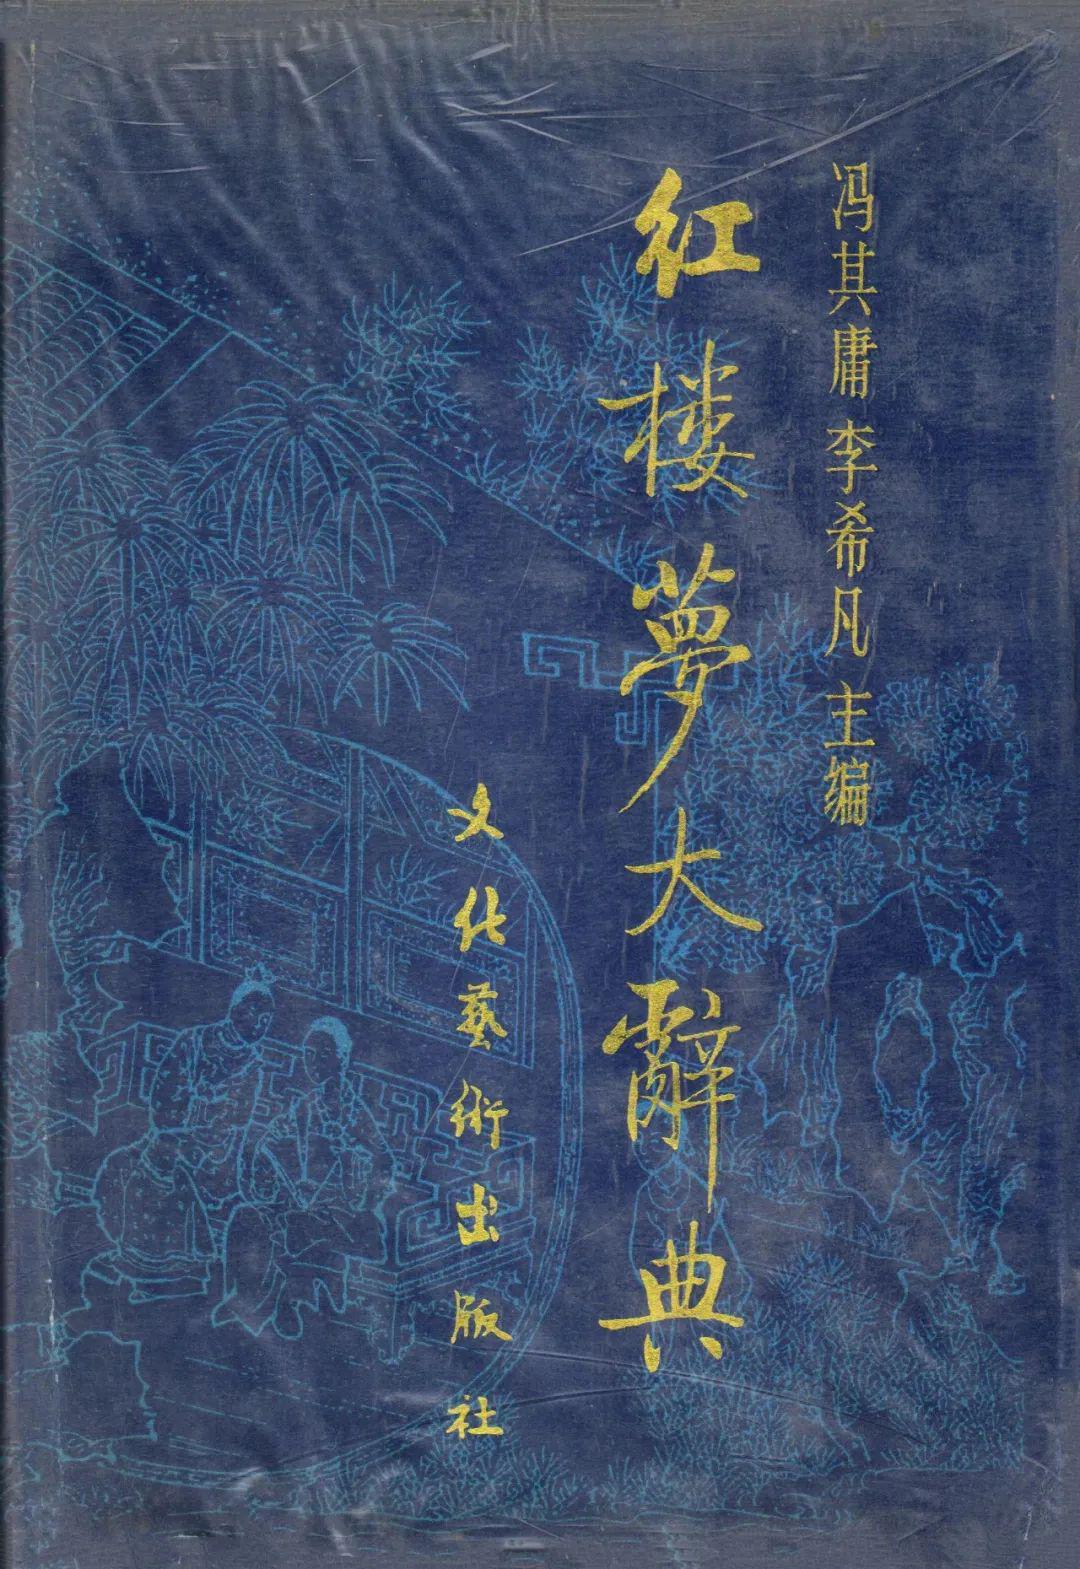 冯其庸 李希凡 主编
红楼夢大辭典
文化藝術出版社